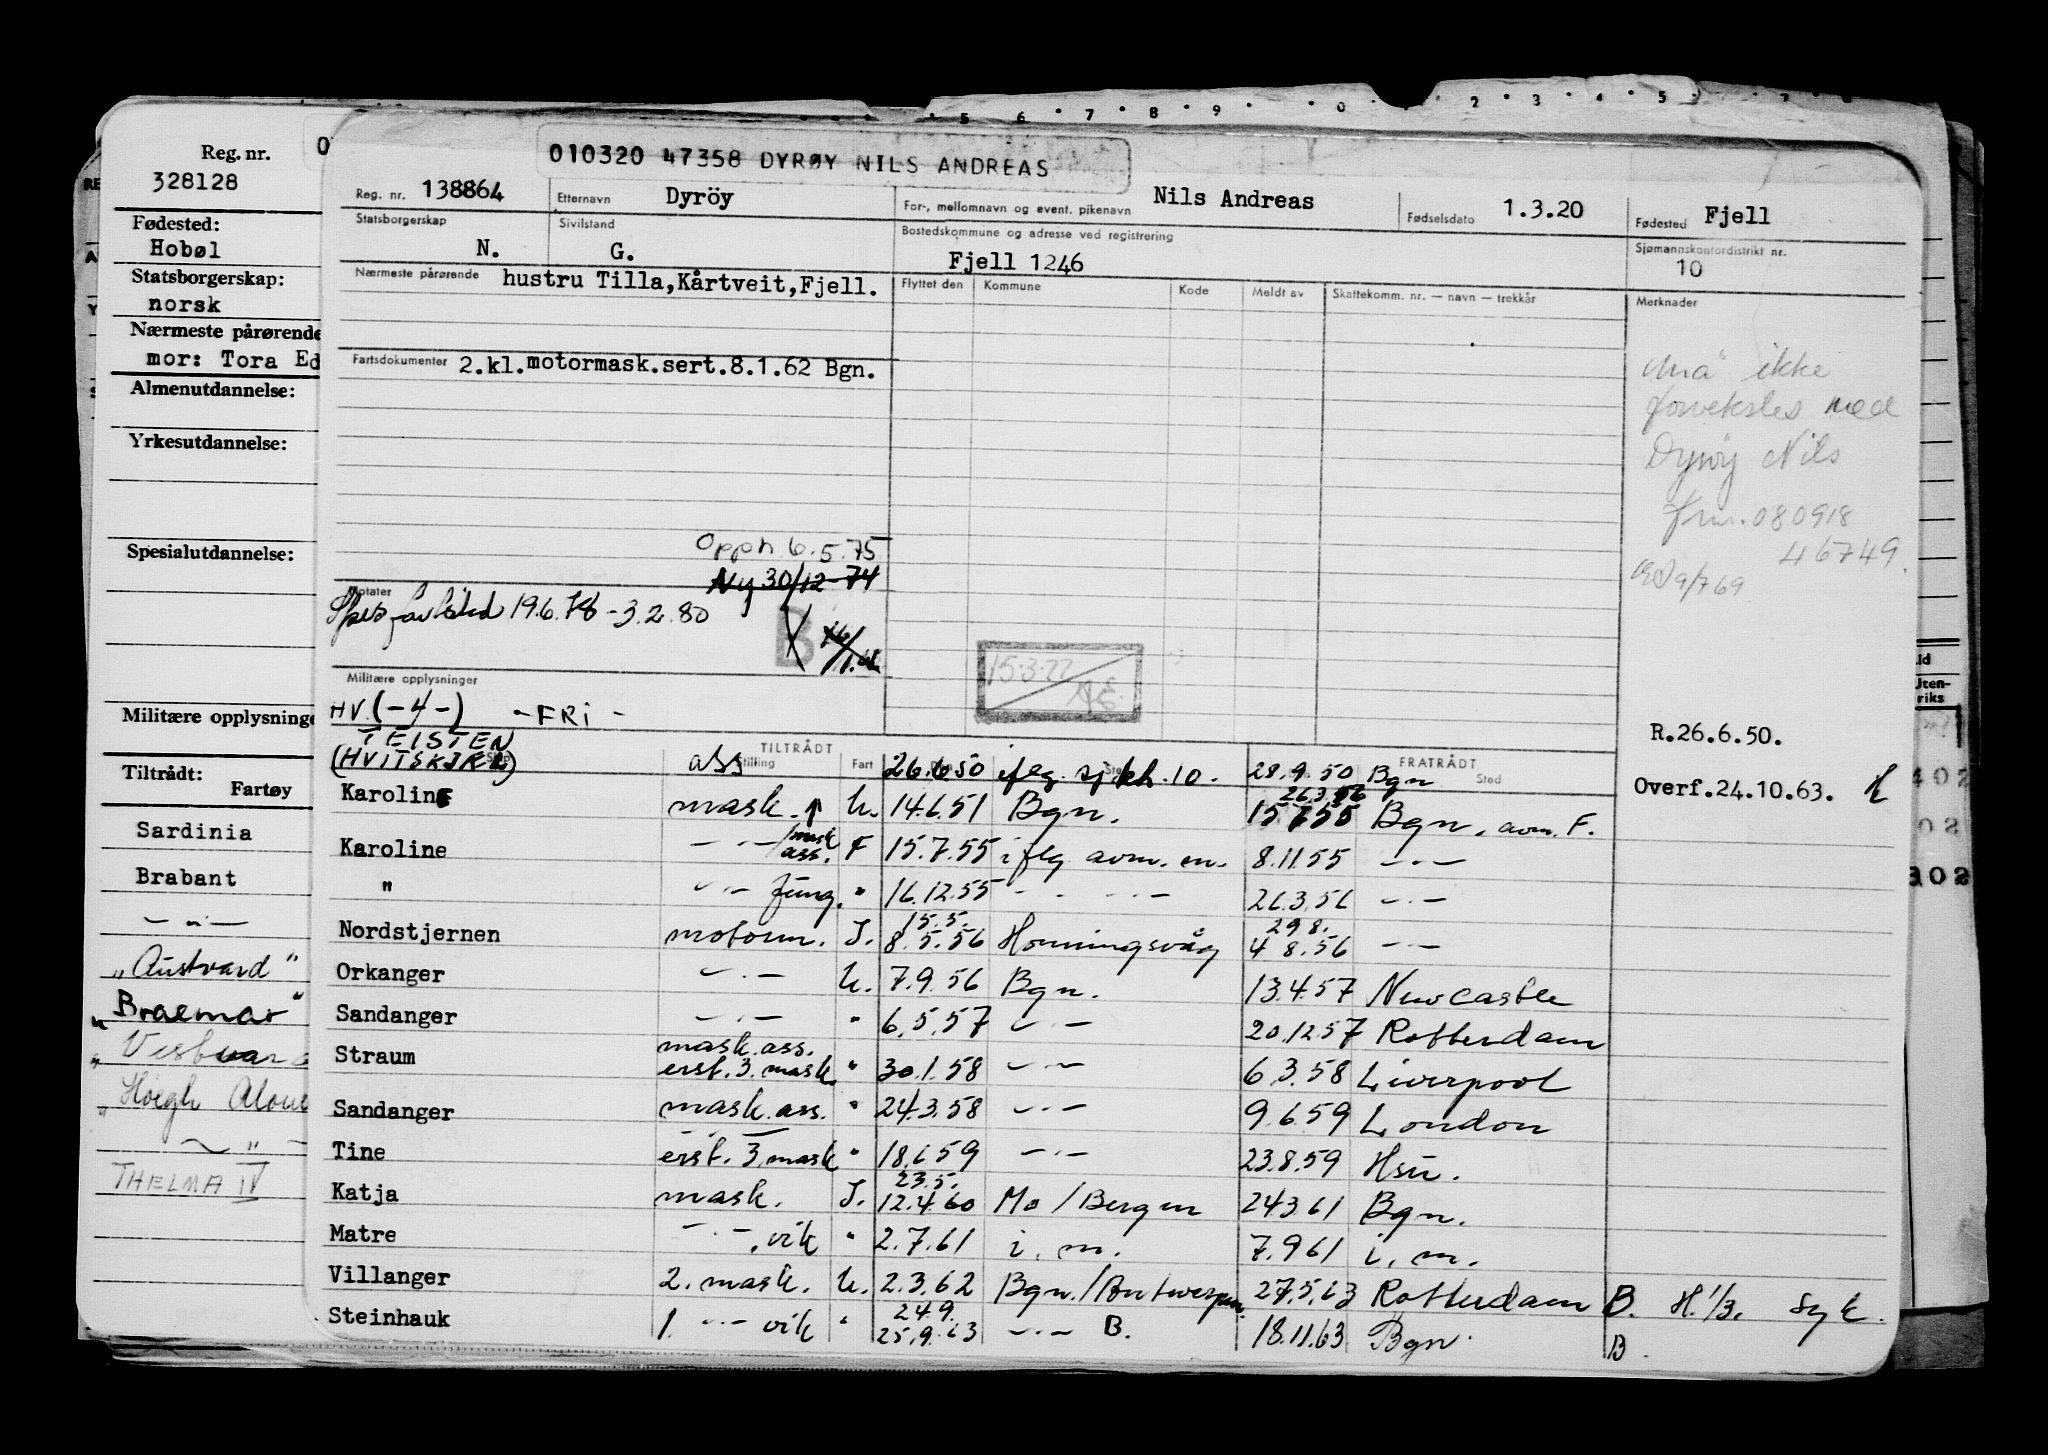 5 6 7 8 9 0 2 3 4 5
Reg. nr.
328128
Fødested:
Hobøl
Statsborgerskap:
norsk
Nærmeste pårørende
mor: Tora Ed
Almenutdannelse:
Yrkesutdannelse:
Spesialutdannelse:
Militære opplysninge
Tiltrådt:
Fartøy
Sardinia
Brabant
— „ —
„Austvard"
„Braemar"
„Høegh
— „ —
THELMA IV
010320 47358 DYRØY NILS ANDREAS
Reg. nr. 138864 Etternavn Dyröy For-, mellomnavn og event. pikenavn Nils Andreas Fødselsdato 1.3.20 Fødested Fjell
Statsborgerskap N. Sivilstand G. Bostedskommune og adresse ved registrering Fjell 1246 Sjømannskontordistrikt nr. 10
Nærmeste pårørende hustru Tilla,Kårtveit,Fjell. Flyttet den Kommune Kode Meldt av Skattekomm. nr. — navn — trekkår Merknader
Fartsdokumenter 2.kl.motormask.sert.8.1.62 Bgn.
Må ikke
forveksles med
Dyrøy Nils
fnr. 080918
46749.
9/769
Opph 6.5.75
Ny 30/12-74
Notater
19.6.78 - 3.2.80
B
15.3.77
Militære opplysninger
HV.(-4-) -FRI-
R.26.6.50.
Overf.24.10.63.
TILTRÅDT FRATRÅDT
Stilling Fart Sted Sted
TEISTEN
(HVITSKJEL) ass 26.6.50 iflg. sj.kh. 10. 28.9.50 Bgn
26.3.56
Karoline mask. U. 14.6.51 Bgn. 15.7.55 Bgn. avm. F.
Karoline — „ — /mask ass. F 15.7.55 iflg avm. en. 8.11.55 — „ —
" — „ — fung. " 16.12.55 — „ — 26.3.56 — „ —
15.5. 29 8.
Nordstjernen motorm. I. 8.5.56 Honningsvåg 4 8.56 — „ —
Orkanger — „ — U. 7.9.56 Bgn. 13.4.57 Newcastle
Sandanger — „ — " 6.5.57 — „ — 20.12.57 Rotterdam
mask.ass.
Straum erst. 3. mask. " 30.1.58 — „ — 6.3.58 Liverpool
Sandanger mask.ass. " 24.3.58 — „ — 9.6.59 London
Tine erst. 3. mask " 18.6.59 — „ — 23.8.59 Hsu.
23.5.
Katja mask. I. 12.4.60 Mo / Bergen 24.3.61 Bgn.
Matre — „ — . vik " 2.7.61 i. m. 7.9.61 i. m.
Villanger 2. mask. U. 2.3.62 Bgn./Antwerpen. 27.5.63 Rotterdam B. H.1/3. syk.
24.9.
Steinhauk 1. — „ — vik " 25.9.63 — „ — B. 18.11.63 Bgn. B
Uten-
riks
402
02
302